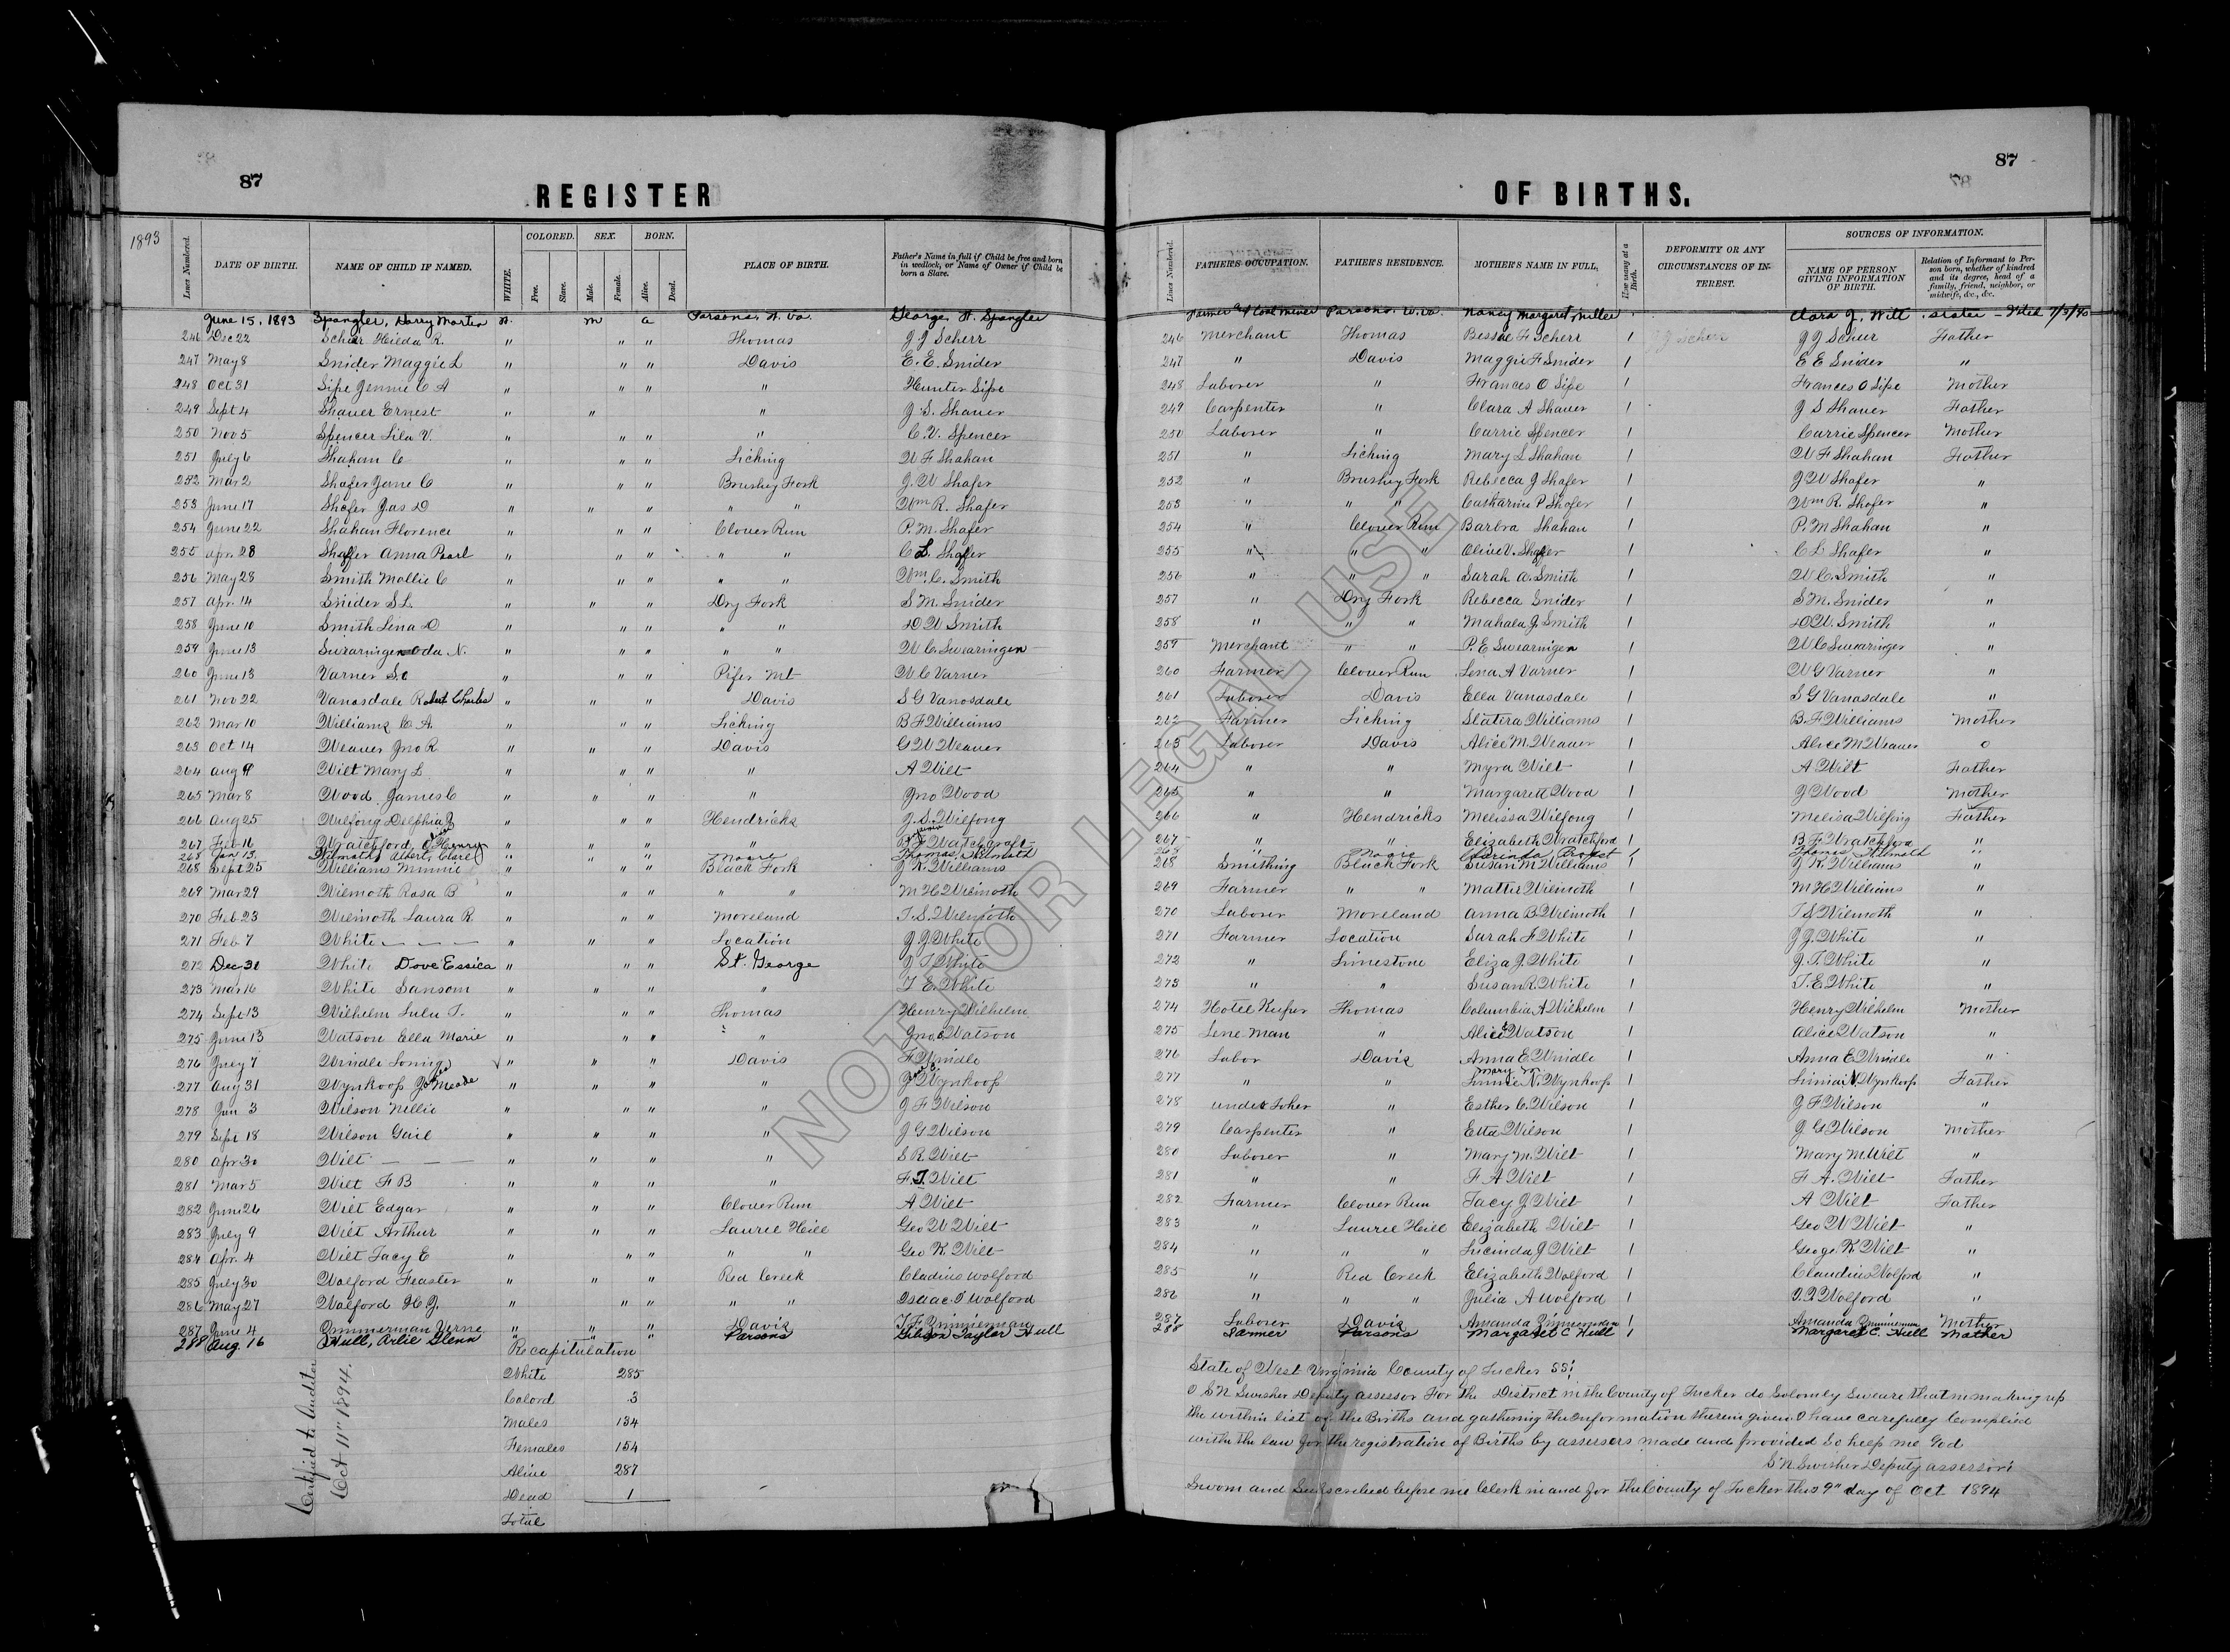 87
87
REGISTER
OF BIRTHS.
1893
Lines Numbered.
DATE OF BIRTH.
NAME OF CHILD IF NAMED.
WHITE.
COLORED.
Free.
Slave.
SEX.
Male.
Female.
BORN.
Alive.
Dead.
PLACE OF BIRTH.
Father's Name in full if Child be free and born in wedlock, or Name of Owner if Child be born a Slave.
Lines Numbered.
FATHER'S OCCUPATION.
FATHER'S RESIDENCE.
MOTHER'S NAME IN FULL.
How many at a Birth.
DEFORMITY OR ANY CIRCUMSTANCES OF INTEREST.
SOURCES OF INFORMATION.
NAME OF PERSON GIVING INFORMATION OF BIRTH.
Relation of Informant to Person born, whether of kindred and its degree, head of a family, friend, neighbor, or midwife, &c., &c.
June 15, 1893 Spangler, Harry Morten W. m a Parsons, W. Va. George W. Spangler Farmer & Coal miner Parsons, W. Va. Nancy Margaret Miller Clara J. Wilt sister
246 Dec 22 Scherr Hilda R. " " " Thomas J J Scherr 246 Merchant Thomas Bessie F Scherr 1 J J Scherr Father
247 May 8 Snider Maggie L " " " Davis E. E. Snider 247 " Davis Maggie F Snider 1 E E Snider "
248 Oct 31 Sipe Jennie C A " " " " Hunter Sipe 248 Laborer " Frances O Sipe 1 Frances O Sipe Mother
249 Sept 4 Shauer Ernest " " " J. S. Shauer 249 Carpenter " Clara A Shauer 1 J S Shauer Father
250 Nov 5 Spencer Lila V. " " " " C. V. Spencer 250 Laborer " Carrie Spencer 1 Carrie Spencer Mother
251 July 6 Shahan C " " " Licking W F Shahan 251 " Licking Mary L Shahan 1 W F Shahan Father
252 Mar 2 Shafer Jane C " " " Brushy Fork J. W Shafer 252 " Brushy Fork Rebecca J Shafer 1 J W Shafer "
253 June 17 Shafer Jas D " " " " " Wm R. Shafer 253 " " " Catharine P Shafer 1 Wm R. Shafer "
254 June 22 Shahan Florence " " " Clover Run P. M. Shafer 254 " Clover Run Barbra Shahan 1 P. M Shahan "
255 Apr. 28 Shaffer Anna Pearl " " " " " C L. Shaffer 255 " " " Olive V. Shaffer 1 C L Shafer "
256 May 28 Smith Mollie C " " " " " Wm. C. Smith 256 " " " Sarah A. Smith 1 W C. Smith "
257 Apr. 14 Snider S L. " " " Dry Fork S M. Snider 257 " Dry Fork Rebecca Snider 1 S M. Snider "
258 June 10 Smith Lena D " " " " " D W Smith 258 " " " Mahala J. Smith 1 D W. Smith "
259 June 13 Swearingen Oda N. " " " " " W C. Swearingen 259 Merchant " " P. E Swearingen 1 W C Swearingen "
260 June 13 Varner S. C " " " Pifer Mt W C Varner 260 Farmer Clover Run Lena A Varner 1 W G Varner "
261 Nov 22 Vanasdale Robert Charles " " " Davis S G Vanosdale 261 Laborer Davis Ella Vanasdale 1 S G Vanasdale "
262 Mar 10 Williams C A. " " " Licking B F Williams 262 Farmer Licking Slatira Williams 1 B. F Williams Mother
263 Oct 14 Weaver Jno R " " " Davis G W Weaver 263 Laborer Davis Alice M. Weaver 1 Alice M Weaver o
264 Aug 9 Wilt Mary L " " " " A Wilt 264 " " Myra Wilt 1 A Wilt Father
265 Mar 8 Wood James C " " " " Jno Wood 265 " " Margaret Wood 1 J Wood Mother
266 Aug 25 Wilfong Delphia J " " " Hendricks J. S. Wilfong 266 " Hendricks Melissa Wilfong 1 Melisa Wilfong Father
267 Feb 16 Wratchford, Henry " " " " 267 " " Elizabeth Wratchford 1 B. F. Wratchford "
268 Jan 13 Wilmoth, Albert, Clare " " " Moore Thomas Wilmoth 268 " Moore Clarinda 1 Thomas Wilmoth "
268 Sept 25 Williams Minnie " " " Black Fork J. K. Williams 268 Smithing Black Fork Susan M Williams 1 J K Williams "
269 Mar 29 Wilmoth Rosa B " " " " " M H Wilmoth 269 Farmer " " Mattie Wilmoth 1 M H Williams "
270 Feb 23 Wilmoth Laura R " " " Moreland T. S. Wilmoth 270 Laborer Moreland Anna B. Wilmoth 1 T S Wilmoth "
271 Feb 7 White — — — " " " Location J. J. White 271 Farmer Location Sarah F White 1 J J. White "
272 Dec 31 White Dove Essica " " " St. George J T White 272 " Limestone Eliza J. White 1 J. T. White "
273 Mar 16 White Sansom " " " " T E. White 273 " " Susan R. White 1 T. E. White "
274 Sept 13 Wilhelm Lulu T. " " " Thomas Henry Wilhelm 274 Hotel Keeper Thomas Columbia A Wilhelm 1 Henry Wilhelm Mother
275 June 13 Watson Ella Marie " " " " Jno. Watson 275 Line Man " Alice Watson 1 Alice Watson "
276 July 7 Windle " " " Davis F Windle 276 Labor Davis Anna E. Windle 1 Anna E Windle "
277 Aug 31 Wynkoop Meade " " " " Wynkoop 277 " " Mary Linnie N. Wynkoop 1 Wynkoop Father
278 Jan 3 Wilson Nellie " " " " J F Wilson 278 under Toker " Esther C. Wilson 1 J F Wilson "
279 Sept 18 Wilson Gail " " " " J G Wilson 279 Carpenter " Etta Wilson 1 J G Wilson Mother
280 Apr 30 Wilt — — — " " " " S R Wilt 280 Laborer " Mary M. Wilt 1 Mary M. Wilt "
281 Mar 5 Wilt F B " " " " F. T. Wilt 281 " " F A Wilt 1 F A. Wilt Father
282 June 26 Wilt Edgar " " " Clover Run A Wilt 282 Farmer Clover Run Tacy J Wilt 1 A Wilt Father
283 July 9 Wilt Arthur " " " Laurel Hill Geo W Wilt 283 " Laurel Hill Elizabeth Wilt 1 Geo W Wilt "
284 Apr. 4 Wilt Tacy E " " " " " Geo K. Wilt 284 " " " Lucinda J Wilt 1 George K. Wilt "
285 July 30 Wolford Feaster " " " Red Creek Cladius Wolford 285 " Red Creek Elizabeth Wolford 1 Claudius Wolford "
286 May 27 Wolford H. J. " " " " " Isaac Wolford 286 " " " Julia A Wolford 1 Wolford "
287 June 4 Zimmerman Verne " " " Davis T. F. Zimmerman 287 Laborer Davis Amanda Zimmerman 1 Amanda Zimmerman Mother
288 Aug. 16 Hull, Arlie Glenn " " " Parsons Gibson Taylor Hull 288 Farmer Parsons Margaret C Hull 1 Margaret C. Hull Mother
Recapitulation
White 285
Colord 3
Males 134
Females 154
Alive 287
Dead 1
Total
Certified to Auditor
Oct 11" 1894.
State of West Virginia County of Tucker SS:
I S N Swisher Deputy assessor For the District in the County of Tucker do Solomly Sweare that in making up
the within list of the Births and gathering the Information therein given I have carefully Complied
with the law for the registration of Births by assessors made and provided So help me God
S N Swisher Deputy assessor
Sworn and Subscribed before me Clerk in and for the County of Tucker this 9" day of Oct 1894
NOT FOR LEGAL USE